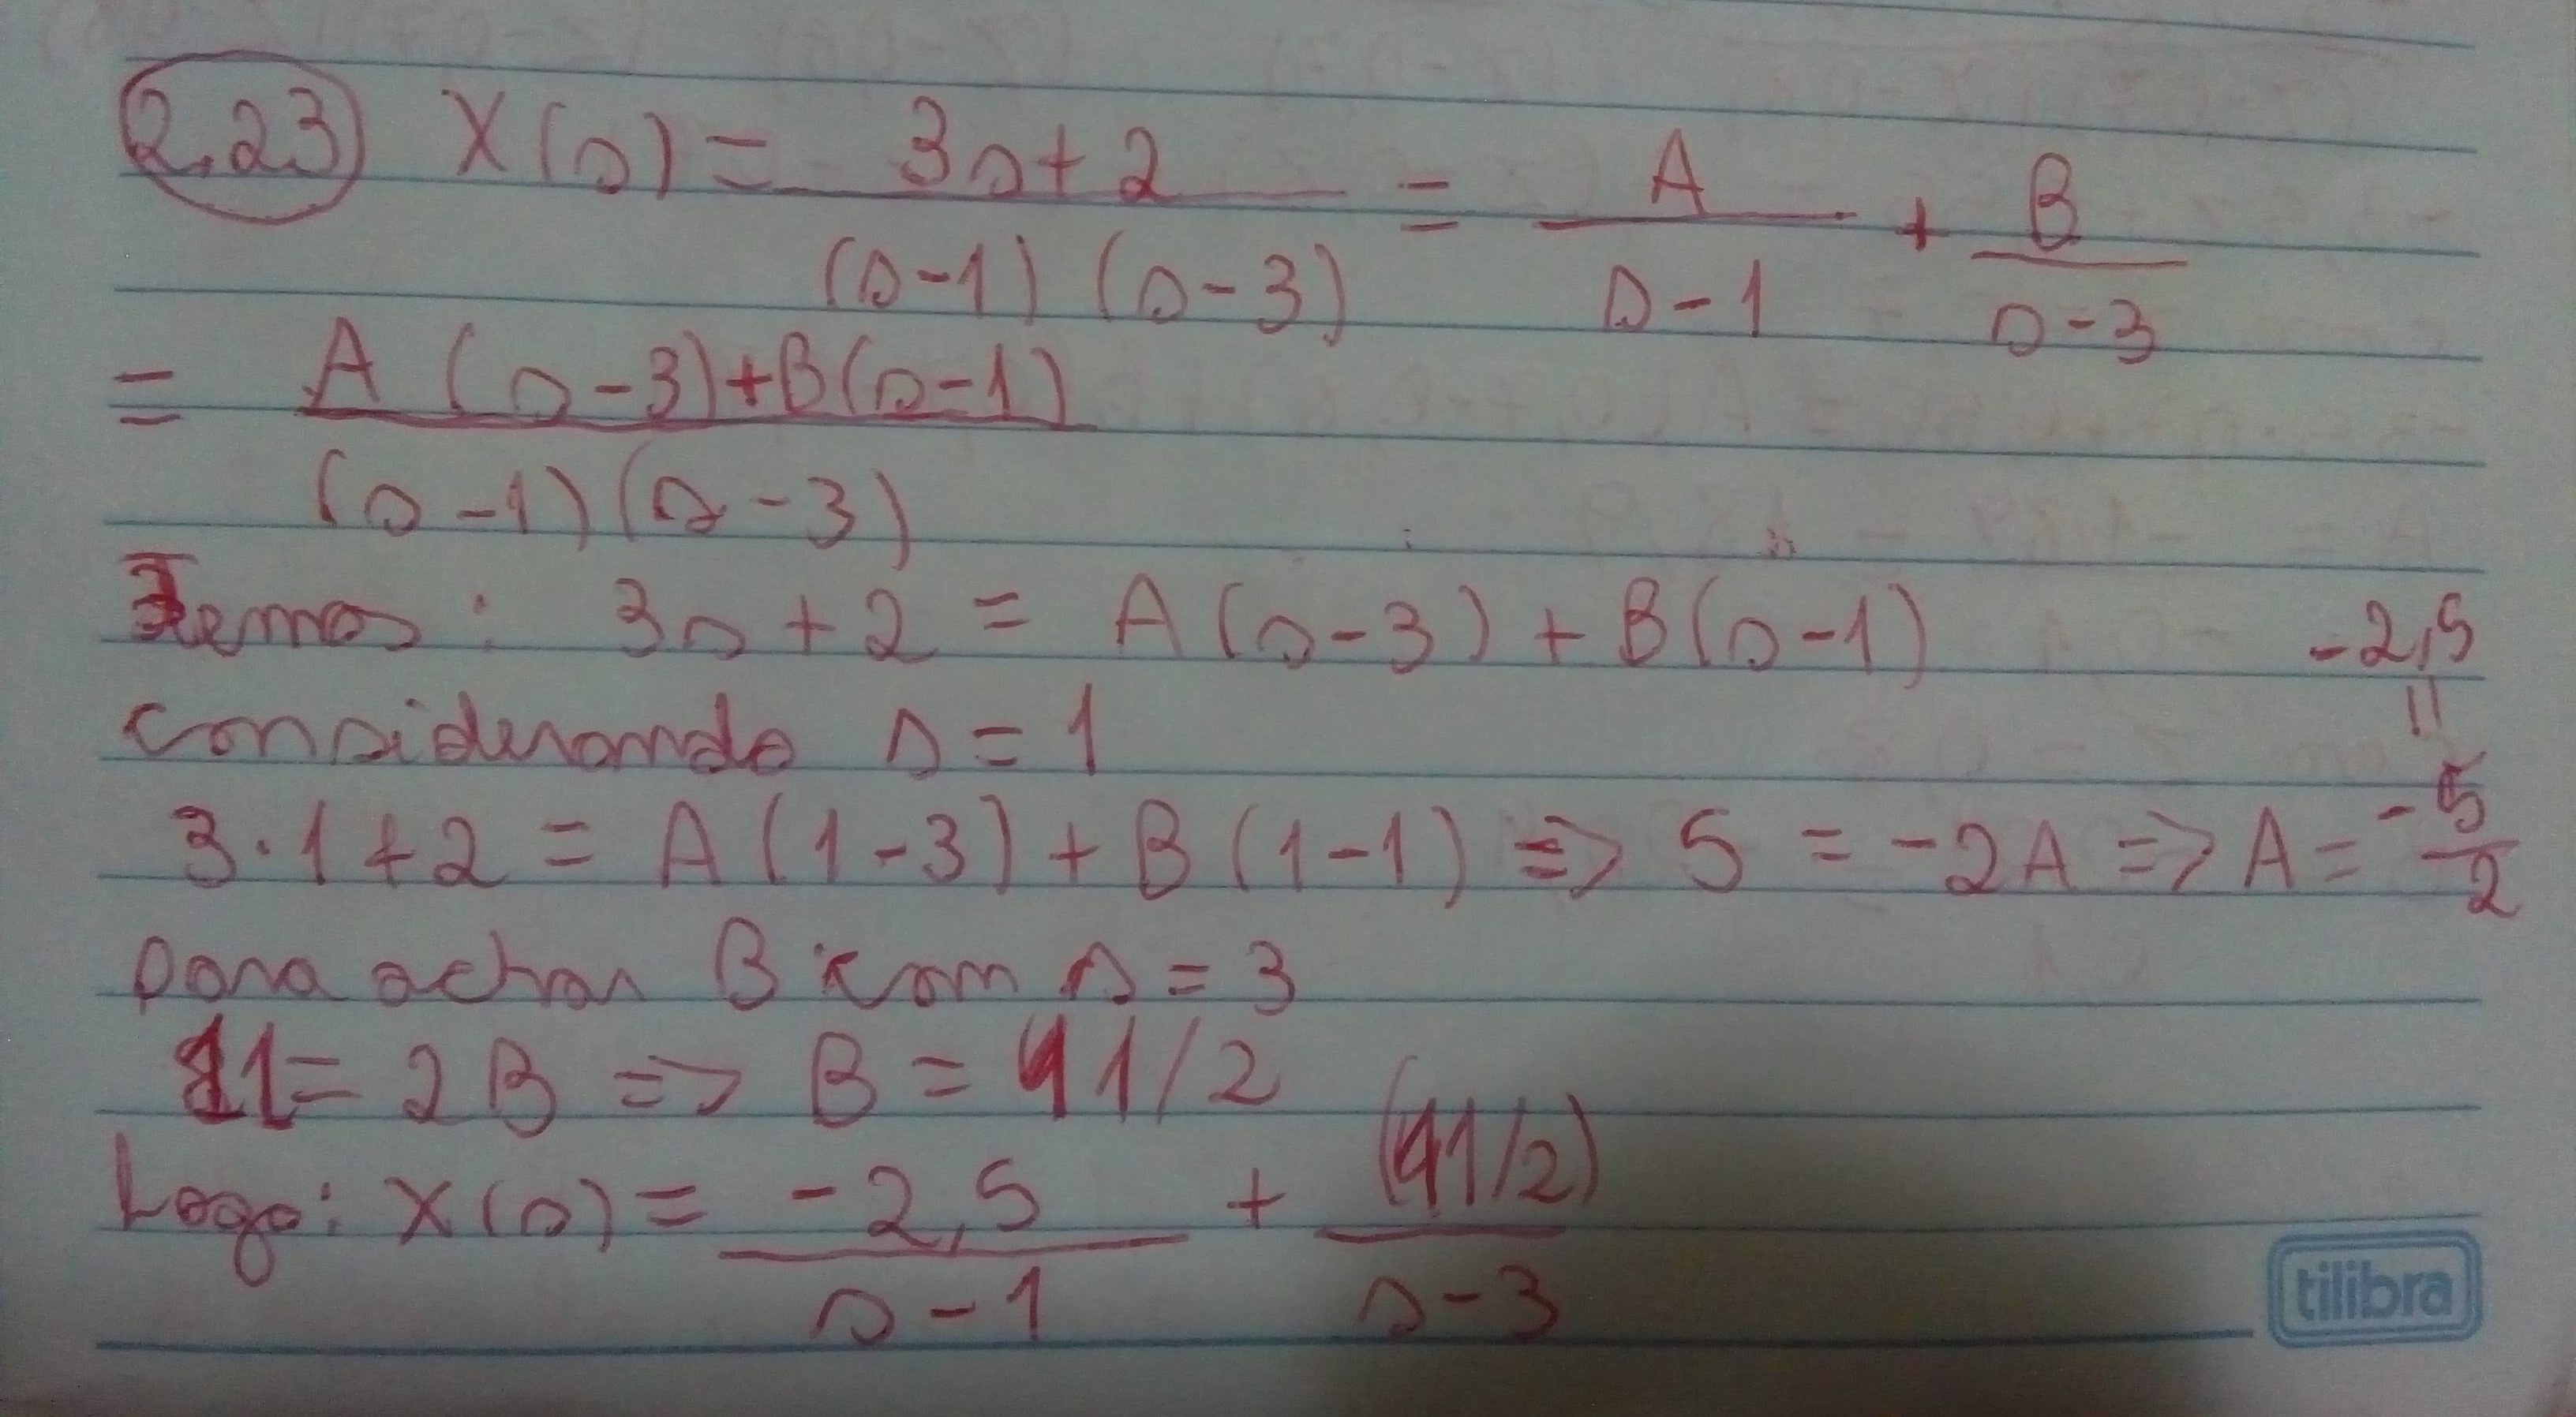 2.23) X(s) = 3s+2 / (s-1)(s-3) = A / s-1 + B / s-3
= A(s-3)+B(s-1) / (s-1)(s-3)
Temos: 3s+2 = A(s-3)+B(s-1)
considerando s=1
3·1+2 = A(1-3)+B(1-1) => 5 = -2A => A = -5/2 = -2,5
para achar B com s=3
11 = 2B => B = 11/2
Logo: X(s) = -2,5 / s-1 + (11/2) / s-3
tilibra